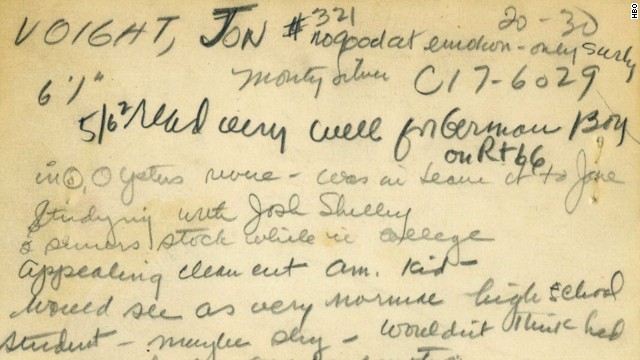 VOIGHT, JON #321 20-30
no good at emotion - only surly
Monty Silver CI7-6029
6'1"
5/62 read very well for German Boy
on Rt 66
in O, Oysters none - was in Leave it to Jane
Studying with Josh Shelley
2 semers stock while in college
appealing clean cut am. kid -
would see as very normal high school
student - maybe shy - wouldn't think had
HBO